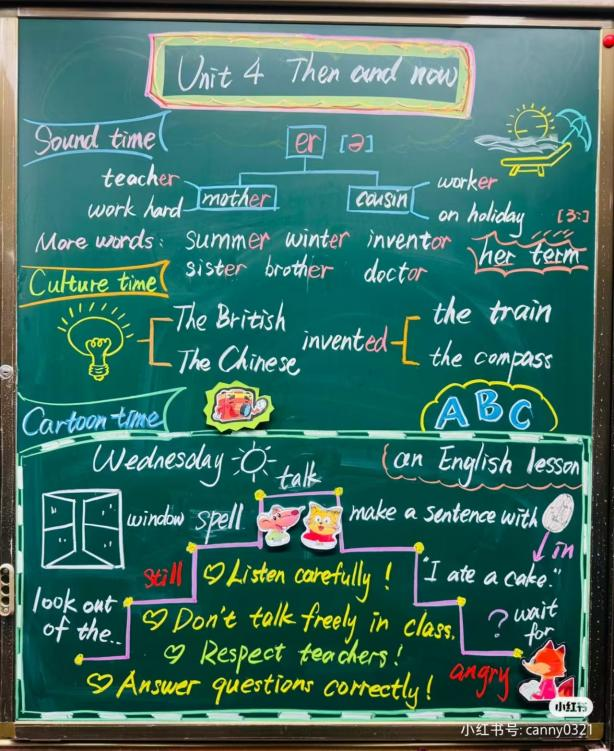 Unit 4 Then and now
Sound time
er [ə]
teacher
work hard
mother
cousin
worker
on holiday
[ɜː]
More words: summer winter inventor
her term
sister brother doctor
Culture time
The British
The Chinese
invented
the train
the compass
Cartoon time
ABC
Wednesday
talk
an English lesson
window spell
make a sentence with
in
still
Listen carefully!
"I ate a cake."
look out
of the..
Don't talk freely in class.
? wait
for
Respect teachers!
angry
Answer questions correctly!
小红书
小红书号: canny0321